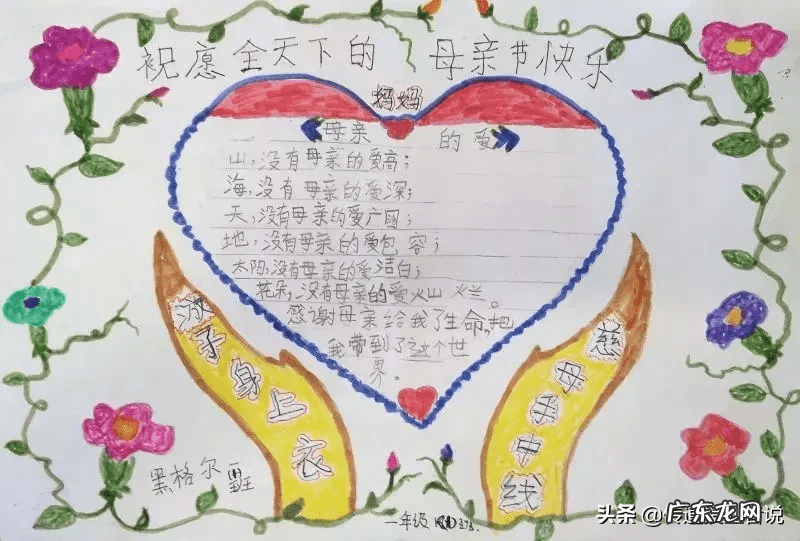 祝愿全天下的 母亲节快乐
妈妈
《母亲 的爱》
山，没有母亲的爱高；
海，没有母亲的爱深；
天，没有母亲的爱广阔；
地，没有母亲的爱包容；
太阳，没有母亲的爱洁白；
花朵，没有母亲的爱灿烂。
感谢母亲给我了生命，把
我带到了这个世
界。
慈母手中线
游子身上衣
黑格尔
一年级
头条 @广东龙网说